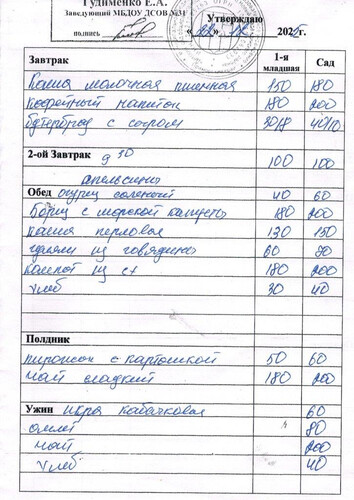 Гудименко Е.А.
Заведующий МБДОУ ДСОВ №31
Утверждаю
подпись « » 2025г.
Завтрак 1-я младшая Сад
Каша молочная пшенная 150 180
Кофейный напиток 180 200
Бутерброд с сыром 30/8 40/10
2-ой Завтрак 9 30 100 100
апельсины
Обед огурец соленый 40 60
Борщ с морской капусты 180 200
Каша перловая 130 150
гуляш из говядины 60 80
компот из с/ф 180 200
хлеб 30 40
Полдник
пирожок с картошкой 50 60
чай сладкий 180 200
Ужин икра кабачковая 60
омлет 80
чай 200
хлеб 40